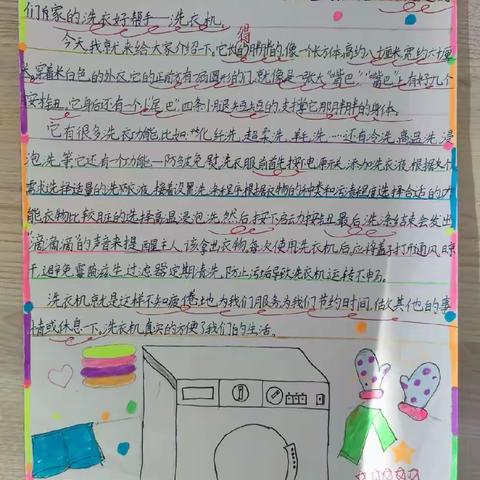 们家的洗衣好帮手—洗衣机。
得
今天我就来给大家介绍下,它长的胖胖的,像一个长方体,高约八十厘米,宽约六十厘
米,穿着米白色的外衣,它的正前方有一扇圆形的门,就像是一张大"嘴巴","嘴巴"上有好几个
安扭,它身后还有一个小尾巴",四条小腿短短的,支撑它那胖胖的身体。
它有很多洗衣功能,比如:化纤洗、超柔洗、羊毛洗……还有冷洗、高温洗、浸
泡洗等,它还有一个功能—防皱免熨,洗衣服前首先按下电源开关,添加洗衣液,根据
需求选择适量的洗衣液,接着设置洗涤程序,根据衣物的种类和污渍程度选择合适的功
能,衣物比较脏的选择高温浸泡洗,然后按下启动按钮,最后,洗涤结束会发出
"滴滴滴"的声音来提醒主人,该拿出衣物,每次使用洗衣机后,应将盖子打开通风晾
干,避免霉菌滋生,过滤器定期清洗,防止污垢导致洗衣机运转不畅。
洗衣机就是这样不知疲倦地为我们服务,为我们节约时间,做其他的事
情或休息一下,洗衣机真实的方便了我们的生活。